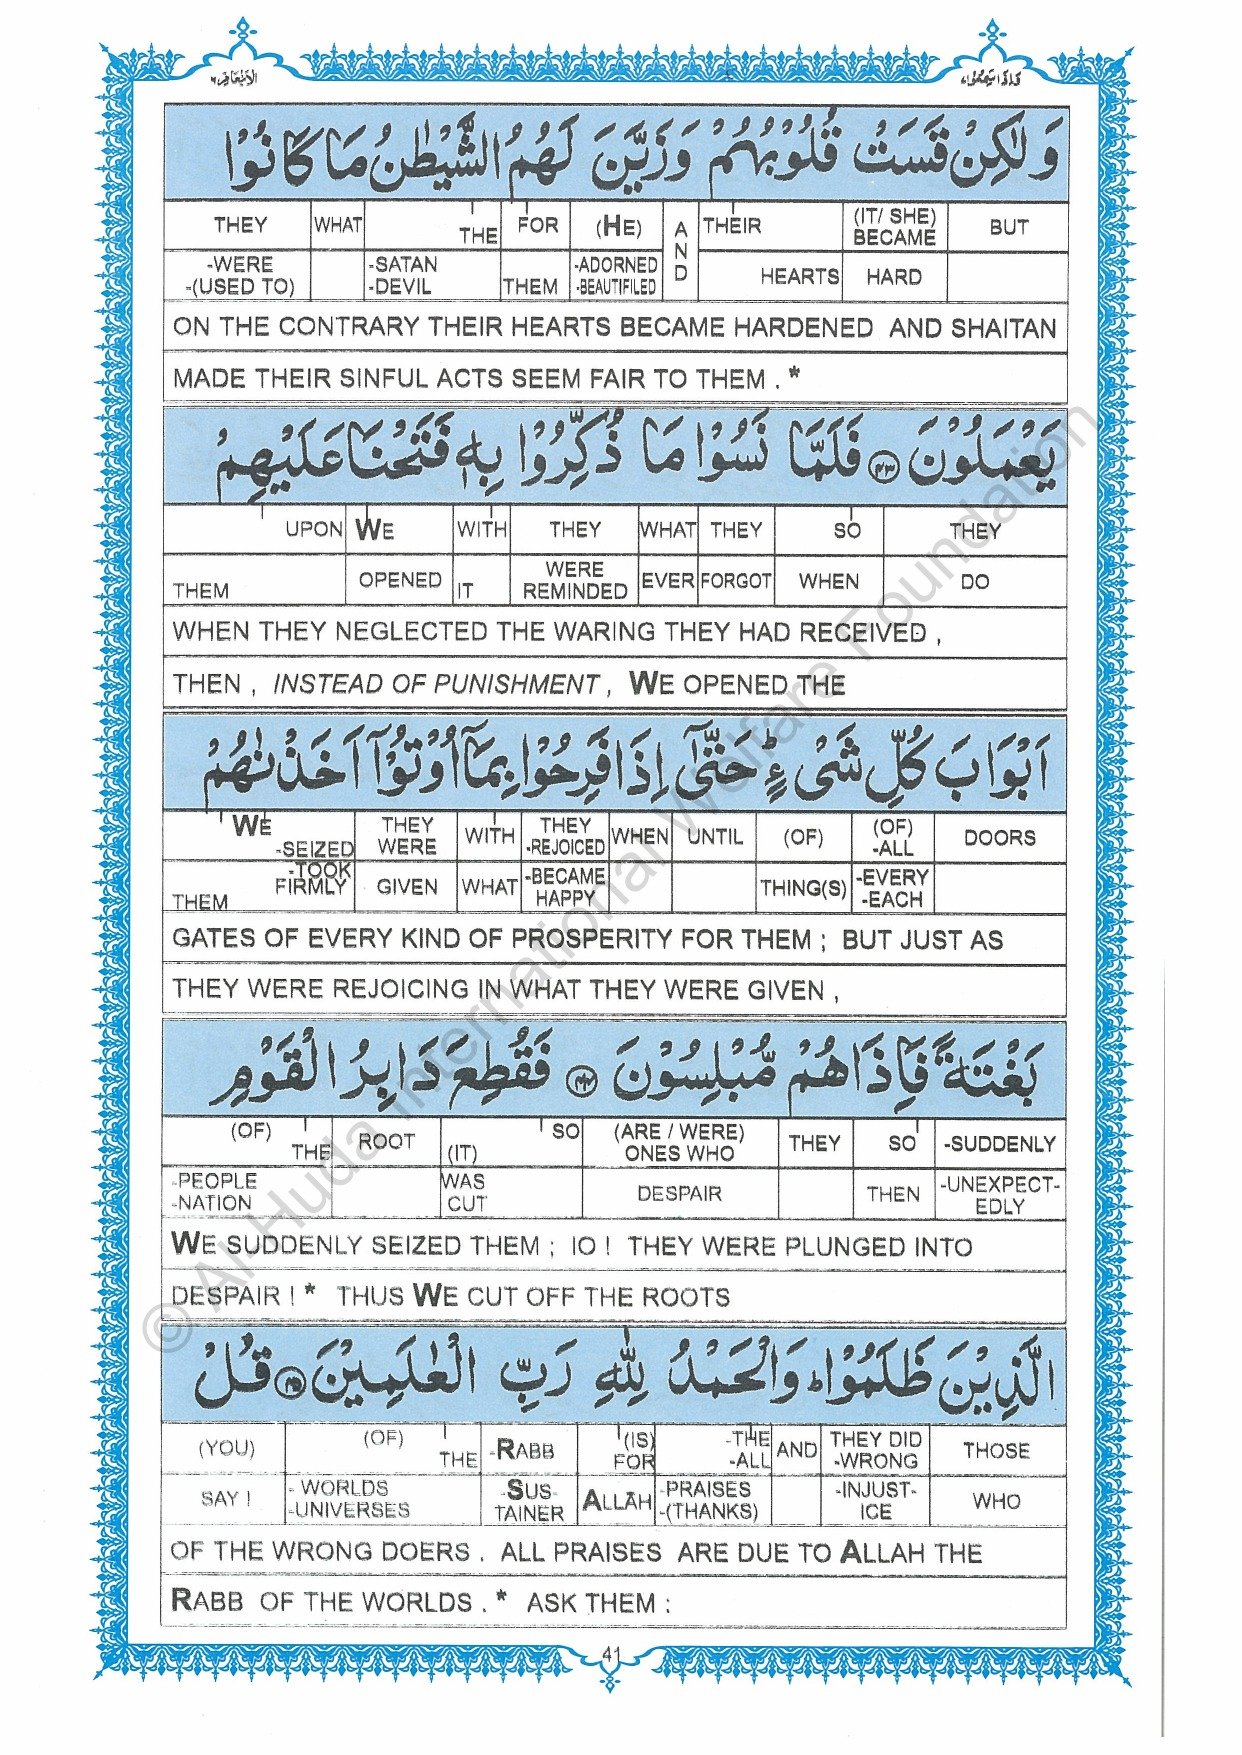 الانعام ٦
واذا سمعوا ٧
وَلٰكِنْ قَسَتْ قُلُوْبُهُمْ وَزَيَّنَ لَهُمُ الشَّيْطٰنُ مَا كَانُوْا
THEY WHAT THE FOR (HE) AND THEIR (IT/ SHE) BECAME BUT
-WERE -(USED TO) -SATAN -DEVIL THEM -ADORNED -BEAUTIFILED HEARTS HARD
ON THE CONTRARY THEIR HEARTS BECAME HARDENED AND SHAITAN
MADE THEIR SINFUL ACTS SEEM FAIR TO THEM . *
يَعْمَلُوْنَ ﴿٤٣﴾ فَلَمَّا نَسُوْا مَا ذُكِّرُوْا بِهٖ فَتَحْنَا عَلَيْهِمْ
UPON WE WITH THEY WHAT THEY SO THEY
THEM OPENED IT WERE REMINDED EVER FORGOT WHEN DO
WHEN THEY NEGLECTED THE WARING THEY HAD RECEIVED ,
THEN , INSTEAD OF PUNISHMENT , WE OPENED THE
اَبْوَابَ كُلِّ شَىْءٍ ؕ حَتّٰٓى اِذَا فَرِحُوْا بِمَاۤ اُوْتُوْۤا اَخَذْنٰهُمْ
WE -SEIZED THEY WERE WITH THEY -REJOICED WHEN UNTIL (OF) (OF) -ALL DOORS
THEM -TOOK FIRMLY GIVEN WHAT -BECAME HAPPY THING(S) -EVERY -EACH
GATES OF EVERY KIND OF PROSPERITY FOR THEM ; BUT JUST AS
THEY WERE REJOICING IN WHAT THEY WERE GIVEN ,
بَغْتَةً فَاِذَا هُمْ مُّبْلِسُوْنَ ﴿٤٤﴾ فَقُطِعَ دَابِرُ الْقَوْمِ
(OF) THE ROOT (IT) SO (ARE / WERE) ONES WHO THEY SO -SUDDENLY
-PEOPLE -NATION WAS CUT DESPAIR THEN -UNEXPECT- EDLY
WE SUDDENLY SEIZED THEM ; IO ! THEY WERE PLUNGED INTO
DESPAIR ! * THUS WE CUT OFF THE ROOTS
الَّذِيْنَ ظَلَمُوْا ؕ وَالْحَمْدُ لِلّٰهِ رَبِّ الْعٰلَمِيْنَ ﴿٤٥﴾ قُلْ
(YOU) (OF) THE -RABB (IS) FOR -THE -ALL AND THEY DID -WRONG THOSE
SAY ! - WORLDS -UNIVERSES -SUS- TAINER ALLĀH -PRAISES -(THANKS) -INJUST- ICE WHO
OF THE WRONG DOERS . ALL PRAISES ARE DUE TO ALLAH THE
RABB OF THE WORLDS . * ASK THEM :
41
© Al-Huda International Welfare Foundation